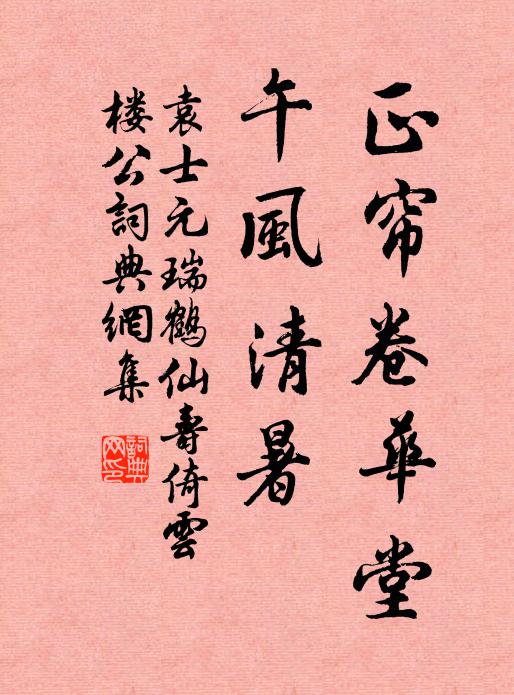 正帘卷華堂
午風清暑
袁士元瑞鶴仙壽倚雲
楼公詞典網集
詞典網印